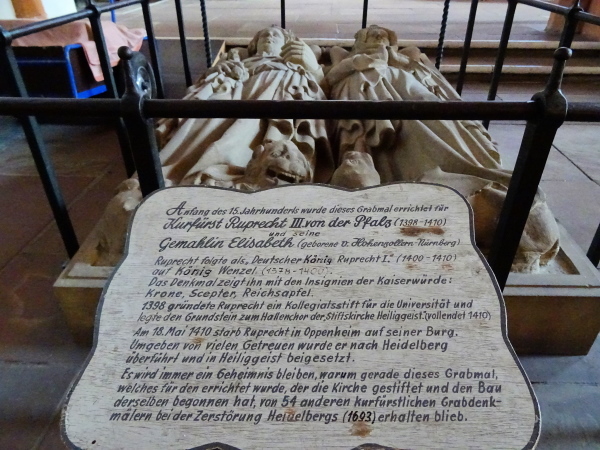 Anfang des 15. Jahrhunderts wurde dieses Grabmal errichtet für
Kurfürst Ruprecht III. von der Pfalz (1398-1410)
und seine
Gemahlin Elisabeth (geborene v. Hohenzollern-Nürnberg)
Ruprecht folgte als, Deutscher König Ruprecht I." (1400-1410)
auf König Wenzel. (1378-1400).
Das Denkmal zeigt ihn mit den Insignien der Kaiserwürde:
Krone, Scepter, Reichsapfel.
1398 gründete Ruprecht ein Kollegiatsstift für die Universität und
legte den Grundstein zum Hallenchor der Stiftskirche Heiliggeist. (vollendet 1410)
Am 18. Mai 1410 starb Ruprecht in Oppenheim auf seiner Burg.
Umgeben von vielen Getreuen wurde er nach Heidelberg
überführt und in Heiliggeist beigesetzt.
Es wird immer ein Geheimnis bleiben, warum gerade dieses Grabmal,
welches für den errichtet wurde, der die Kirche gestiftet und den Bau
derselben begonnen hat, von 54 anderen kurfürstlichen Grabdenk-
mälern bei der Zerstörung Heidelbergs (1693) erhalten blieb.